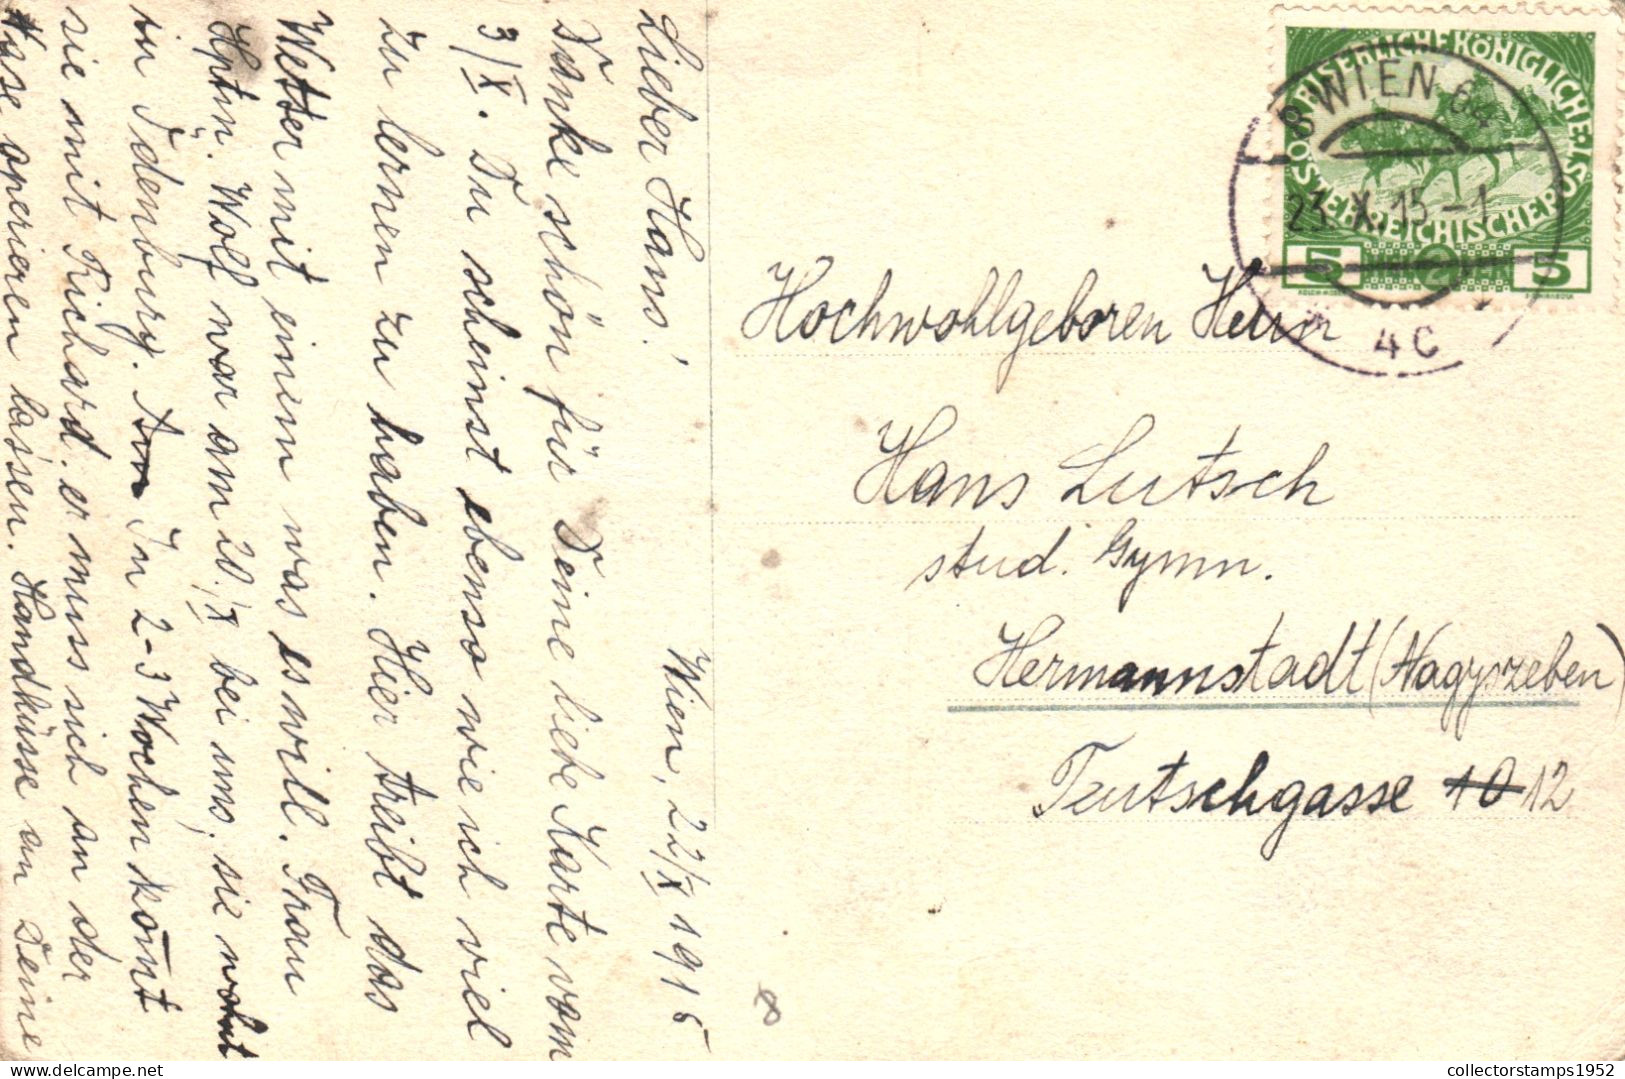 Wien, 22/X 1915
Lieber Hans!
Danke schön für Deine liebe Karte vom
3/X. Du scheinst ebenso wie ich viel
zu lernen zu haben. Hier treibt das
Wetter mit einem was es will. Frau
Hptm. Wolf war am 20./X bei uns, sie wohnt
in Ödenburg. In 2-3 Wochen kom̄t
sie mit Richard. er muss sich an der
Nase operieren lassen. Handküsse an Deine
Hochwohlgeboren Herrn
Hans Lutsch
stud. Gymn.
Hermannstadt (Nagyszeben)
Teutschgasse 10 12
8
KAISERLICHE KÖNIGLICHE
ÖSTERREICHISCHE POST
5 5
8 WIEN 64
23. X. 15 - 1
4 C
collectorstamps1952